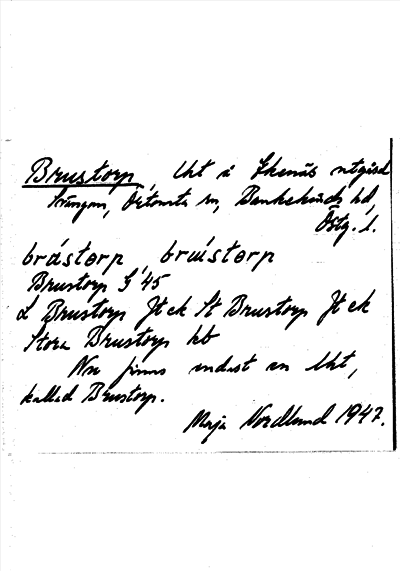 Brustorp, lht i Ekenäs utgård
Svängen, Örtomta sn, Bankekinds hd,
Östg. l.
brústorp, brústorp
Brustorp G '45
L Brustorp Jt ek St Brustorp Jt ek
Stora Brustorp hb
Nu finns endast en lht,
kallad Brustorp.
Maja Nordlund 1947.